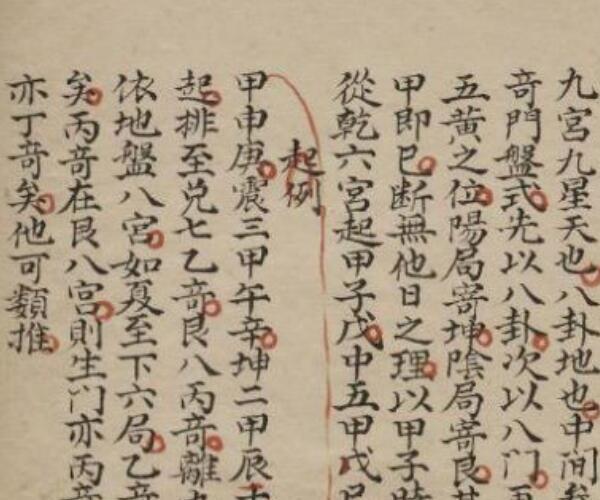 九宮九星天也八卦地也中間
奇門盤式先以八卦次以八門
五黃之位陽局寄坤陰局寄艮
甲即巳断無他日之理以甲子
從乾六宮起甲子戊中五甲戌
起例
甲申庚震三甲午辛坤二甲辰
起排至兑七乙奇艮八丙奇離
依地盤八宮如夏至下六局乙奇
矣丙奇在艮八宮則生門亦丙奇
亦丁奇矣他可類推